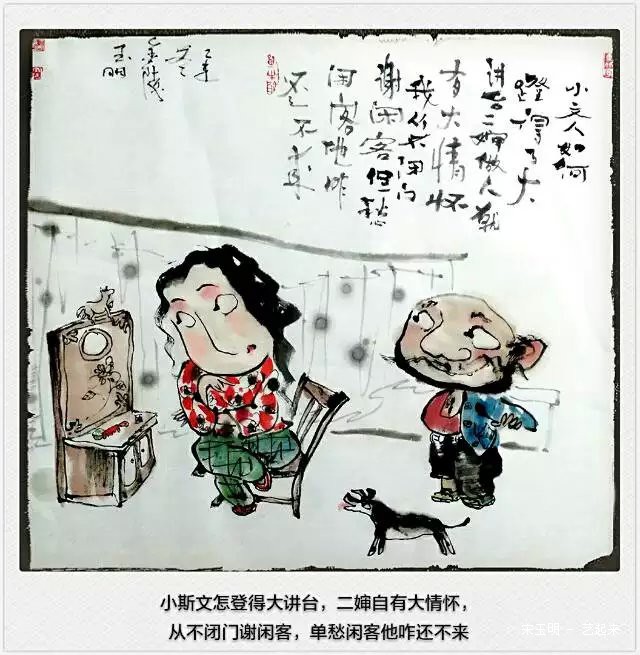 小文人如何
蹬得了大
讲台二婶做人就
有大情怀
我从不闭门
谢闲客但愁
闲客他咋
还不来
玉明
小斯文怎登得大讲台，二婶自有大情怀，
从不闭门谢闲客，单愁闲客他咋还不来